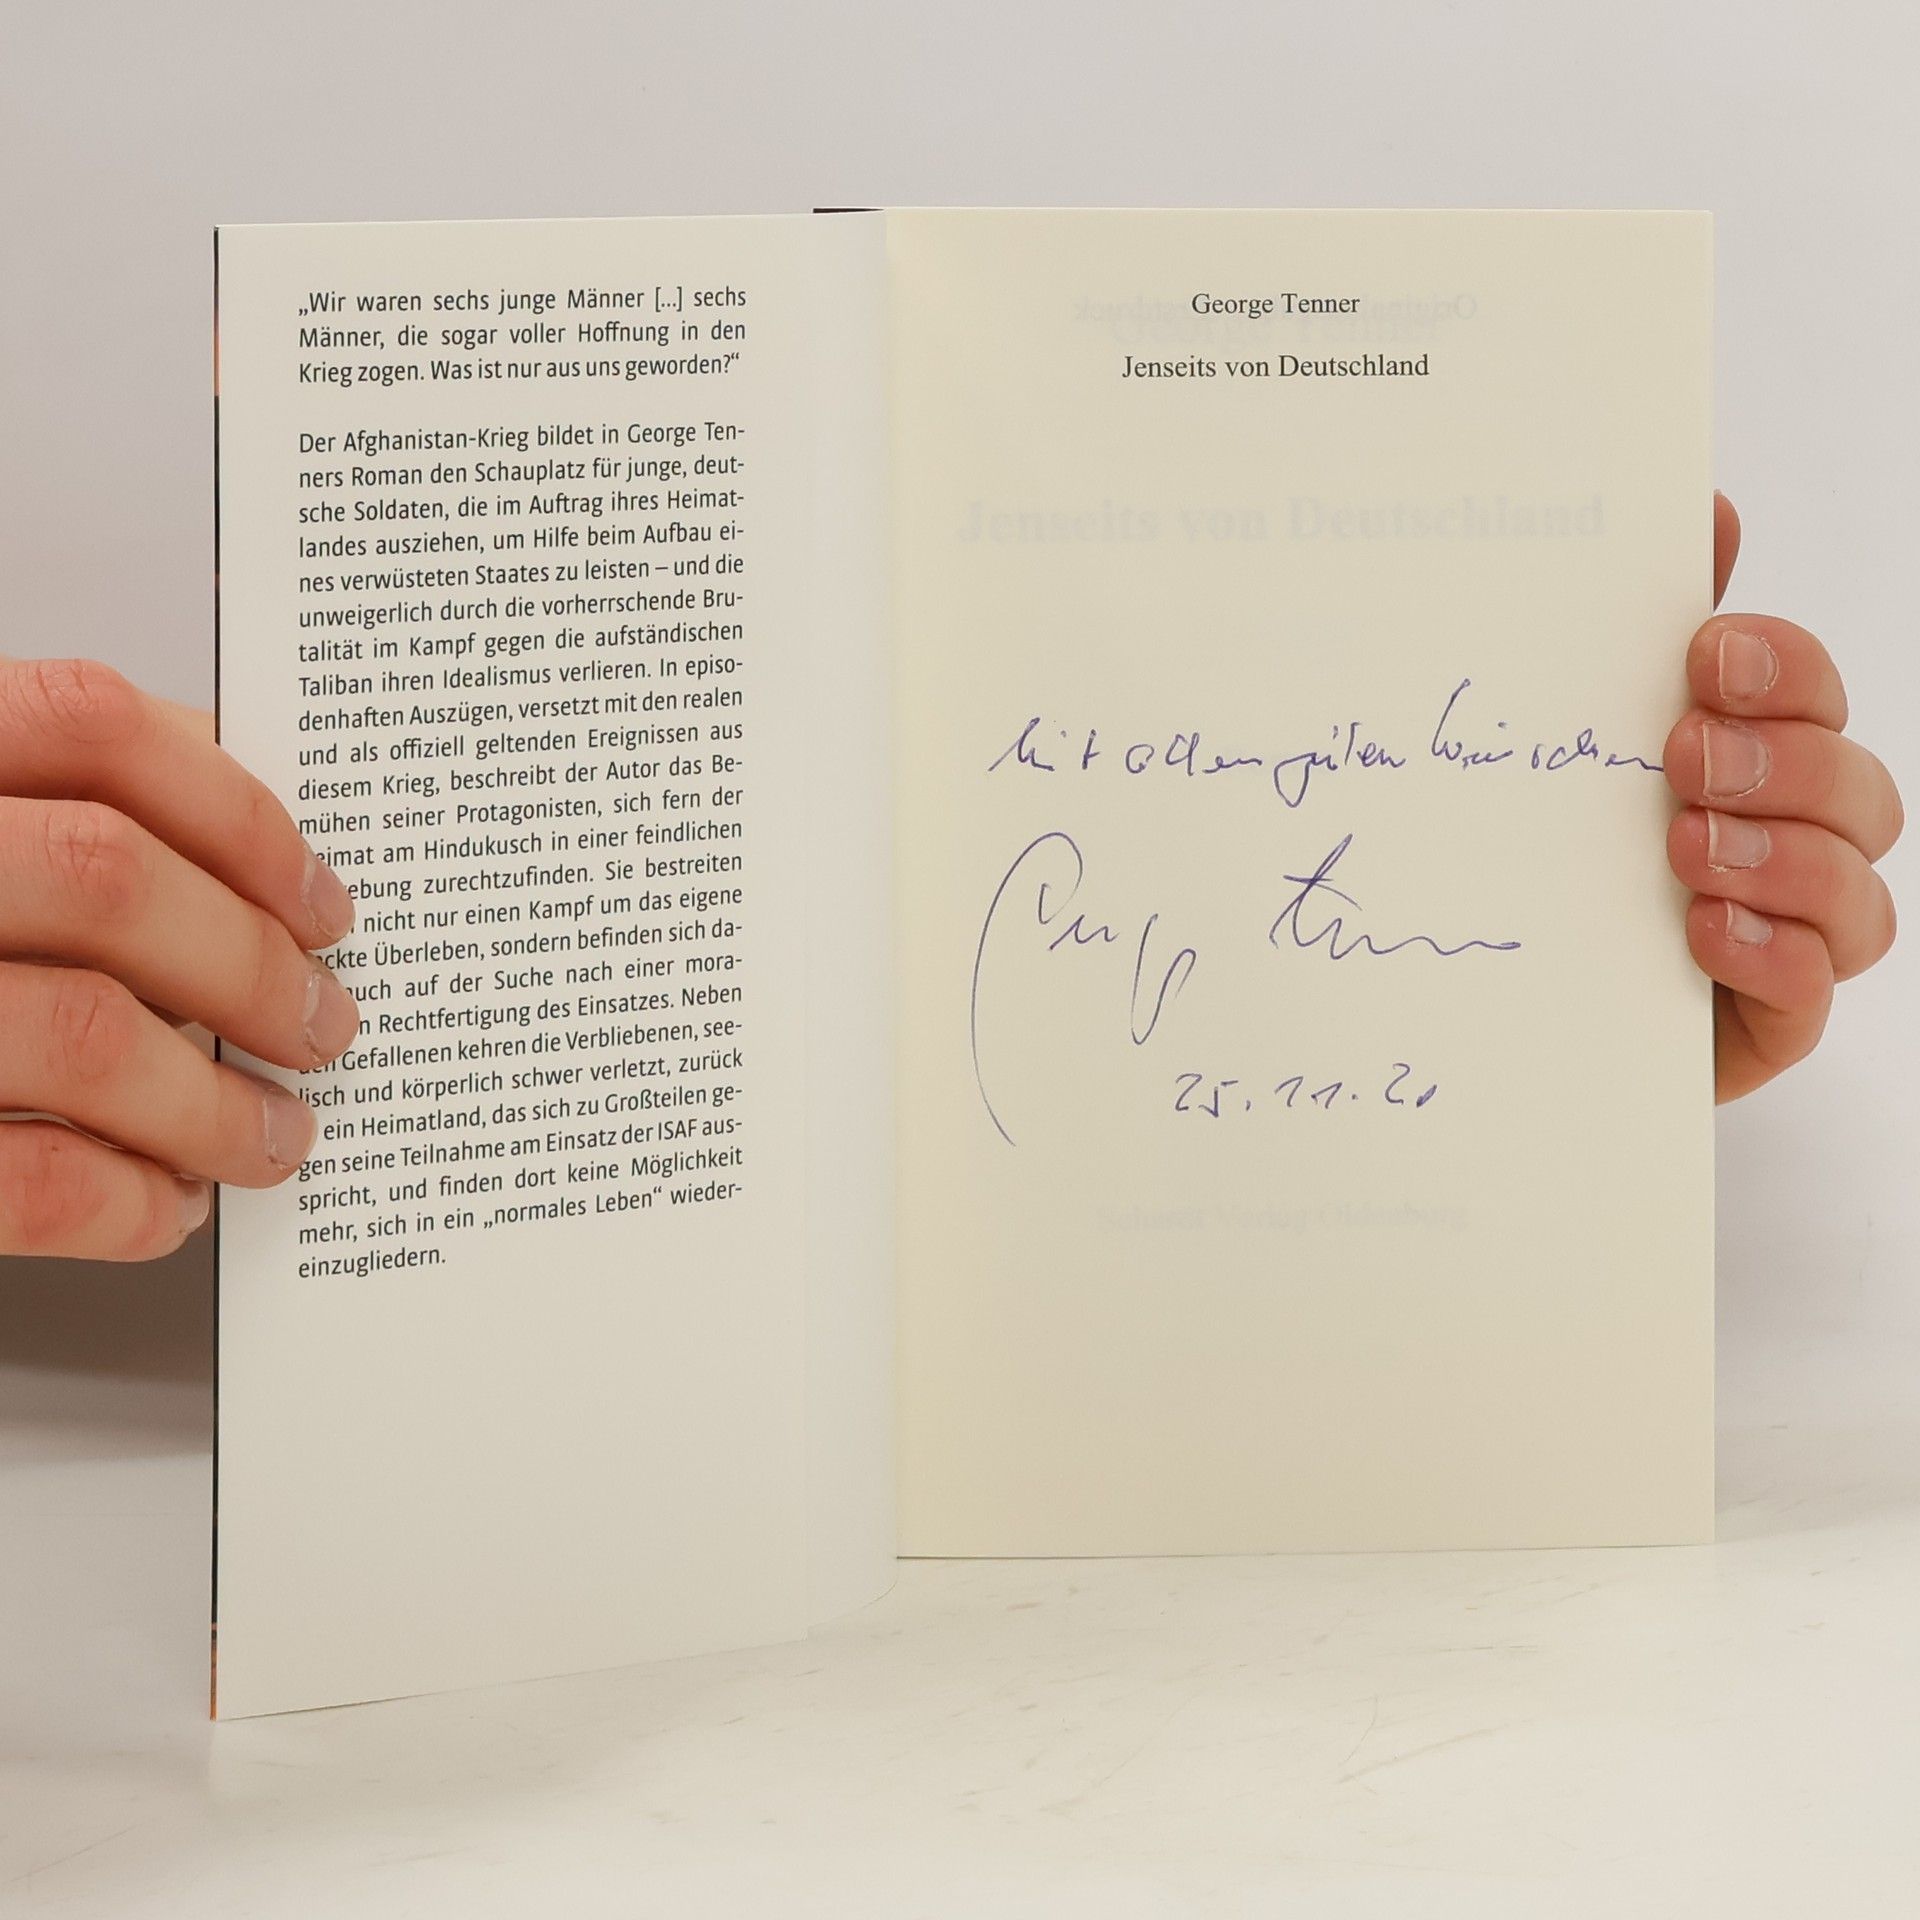 „Wir waren sechs junge Männer [...] sechs
Männer, die sogar voller Hoffnung in den
Krieg zogen. Was ist nur aus uns geworden?“
Der Afghanistan-Krieg bildet in George Ten-
ners Roman den Schauplatz für junge, deut-
sche Soldaten, die im Auftrag ihres Heimat-
landes ausziehen, um Hilfe beim Aufbau ei-
nes verwüsteten Staates zu leisten – und die
unweigerlich durch die vorherrschende Bru-
talität im Kampf gegen die aufständischen
Taliban ihren Idealismus verlieren. In episo-
denhaften Auszügen, versetzt mit den realen
und als offiziell geltenden Ereignissen aus
diesem Krieg, beschreibt der Autor das Be-
mühen seiner Protagonisten, sich fern der
eimat am Hindukusch in einer feindlichen
ebung zurechtzufinden. Sie bestreiten
nicht nur einen Kampf um das eigene
ckte Überleben, sondern befinden sich da-
uch auf der Suche nach einer mora-
n Rechtfertigung des Einsatzes. Neben
den Gefallenen kehren die Verbliebenen, see-
lisch und körperlich schwer verletzt, zurück
ein Heimatland, das sich zu Großteilen ge-
gen seine Teilnahme am Einsatz der ISAF aus-
spricht, und finden dort keine Möglichkeit
mehr, sich in ein „normales Leben“ wieder-
einzugliedern.
George Tenner
Jenseits von Deutschland
Jenseits von Deutschland
Mit allen guten Wünschen
George Tenner
25.11.20